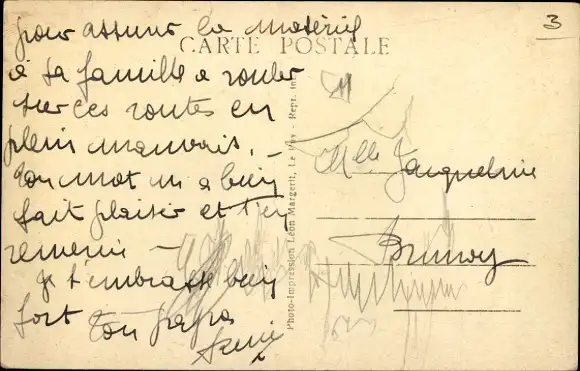 pour assurer la matériel
CARTE POSTALE
3
à sa famille a rouler
sur ces routes en
plein mauvais. –
Ton mot m'a bien
fait plaisir et t'en
remercie –
Je t'embrasse bien
fort Ton papa
Mlle Jacqueline
Brunoy
Photo-Impression Léon Margerit, Le Puy - Repr. int.